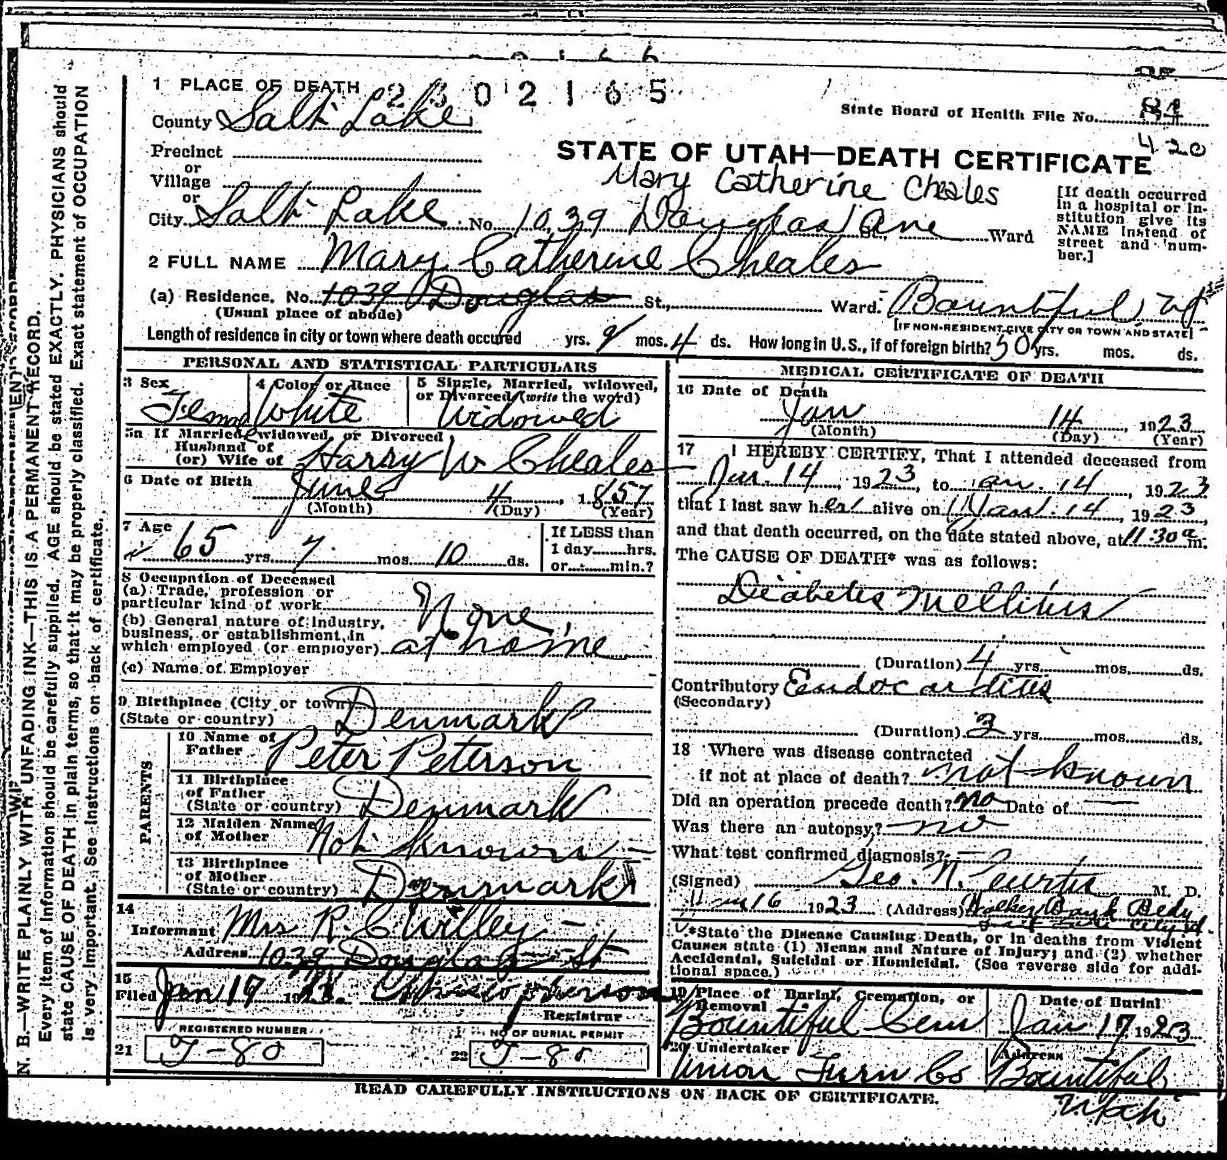 1 PLACE OF DEATH 2302165
State Board of Health File No. 84
420
County Salt Lake
Precinct
or
Village
or
STATE OF UTAH—DEATH CERTIFICATE
Mary Catherine Cheales
City Salt Lake No. 1039 Douglas Ave St., Ward
[If death occurred in a hospital or institution give its NAME instead of street and number.]
2 FULL NAME Mary Catherine Cheales
(a) Residence. No. 1039 Douglas St., Ward. Bountiful Ut
(Usual place of abode)
[IF NON-RESIDENT GIVE CITY OR TOWN AND STATE]
Length of residence in city or town where death occured yrs. 9 mos. 4 ds. How long in U.S., if of foreign birth? 50 yrs. mos. ds.
PERSONAL AND STATISTICAL PARTICULARS
3 Sex Female
4 Color or Race White
5 Single, Married, widowed, or Divorced (write the word) Widowed
5a If Married, widowed, or Divorced
Husband of
(or) Wife of Harry W Cheales
6 Date of Birth June 4, 1857
(Month) (Day) (Year)
7 Age 65 yrs. 7 mos. 10 ds.
If LESS than
1 day hrs.
or min.?
8 Occupation of Deceased
(a) Trade, profession or
particular kind of work None,
(b) General nature of industry,
business, or establishment, in
which employed (or employer) at home
(c) Name of Employer
9 Birthplace (City or town)
(State or country) Denmark
PARENTS
10 Name of
Father Peter Peterson
11 Birthplace
of Father
(State or country) Denmark
12 Maiden Name
of Mother Not known
13 Birthplace
of Mother
(State or country) Denmark
14
Informant Mrs R. C Willey
Address 1039 Douglas St
15
Filed Jan 17 1923.
Registrar
REGISTERED NUMBER
21 J-80
NO OF BURIAL PERMIT
22 J-80
MEDICAL CERTIFICATE OF DEATH
16 Date of Death
Jan 14, 1923
(Month) (Day) (Year)
17 I HEREBY CERTIFY, That I attended deceased from
Jan. 14, 1923, to Jan. 14, 1923
that I last saw her alive on Jan. 14, 1923,
and that death occurred, on the date stated above, at 11:30 a m.
The CAUSE OF DEATH* was as follows:
Diabetes Mellitus
(Duration) 4 yrs. mos. ds.
Contributory Endocarditis
(Secondary)
(Duration) 3 yrs. mos. ds.
18 Where was disease contracted
if not at place of death? not known
Did an operation precede death? no Date of
Was there an autopsy? no
What test confirmed diagnosis?
(Signed) Geo. N. Curtis M. D.
Jan 16 1923 (Address) Walker Bank Bldg
Salt Lake City Ut.
*State the Disease Causing Death, or in deaths from Violent
Causes state (1) Means and Nature of Injury; and (2) whether
Accidental, Suicidal or Homicidal. (See reverse side for additional space.)
19 Place of Burial, Cremation, or
Removal
Bountiful Cem
Date of Burial
Jan 17 1923
20 Undertaker
Union Furn Co
Address
Bountiful
Utah
READ CAREFULLY INSTRUCTIONS ON BACK OF CERTIFICATE.
N. B.—WRITE PLAINLY WITH UNFADING INK—THIS IS A PERMANENT RECORD.
Every item of information should be carefully supplied. AGE should be stated EXACTLY. PHYSICIANS should
state CAUSE OF DEATH in plain terms, so that it may be properly classified. Exact statement of OCCUPATION
is very important. See instructions on back of certificate.